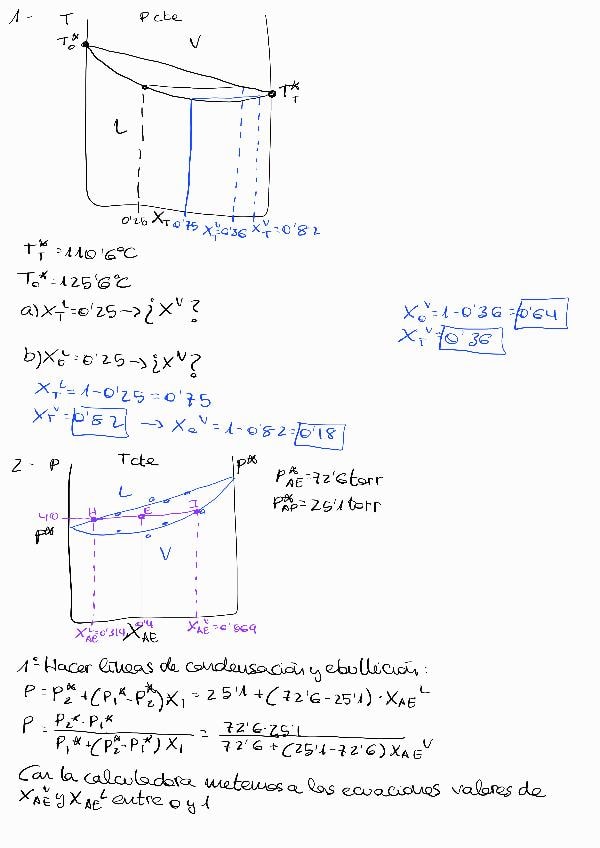 1-
T
P cte
To*
V
T_T*
L
0'26
X_T
0'75
X_T^V=0'36
X_T^V=0'82
T_T*=110'6°C
To*=125'6°C
a) X_T^L=0'25→¿X^V?
X_O^V=1-0'36=0'64
X_T^V=0'36
b) X_O^L=0'25→¿X^V?
X_T^L=1-0'25=0'75
X_T^V=0'82 → X_O^V=1-0'82=0'18
2-
P
T cte
P*
P*_AE=72'6 torr
P*_AP=25'1 torr
L
40
H
E
I
P*
V
X_AE^L=0'314
0'4
X_AE
X_AE^V=0'569
1º Hacer líneas de condensación y ebullición:
P=P2*+(P1*-P2*)X1=25'1+(72'6-25'1)·X_AE^L
P=P2*·P1*/(P1*+(P2*-P1*)X1)=72'6·25'1/(72'6+(25'1-72'6)X_AE^V)
Con la calculadora metemos a las ecuaciones valores de
X_AE^V y X_AE^L entre 0 y 1